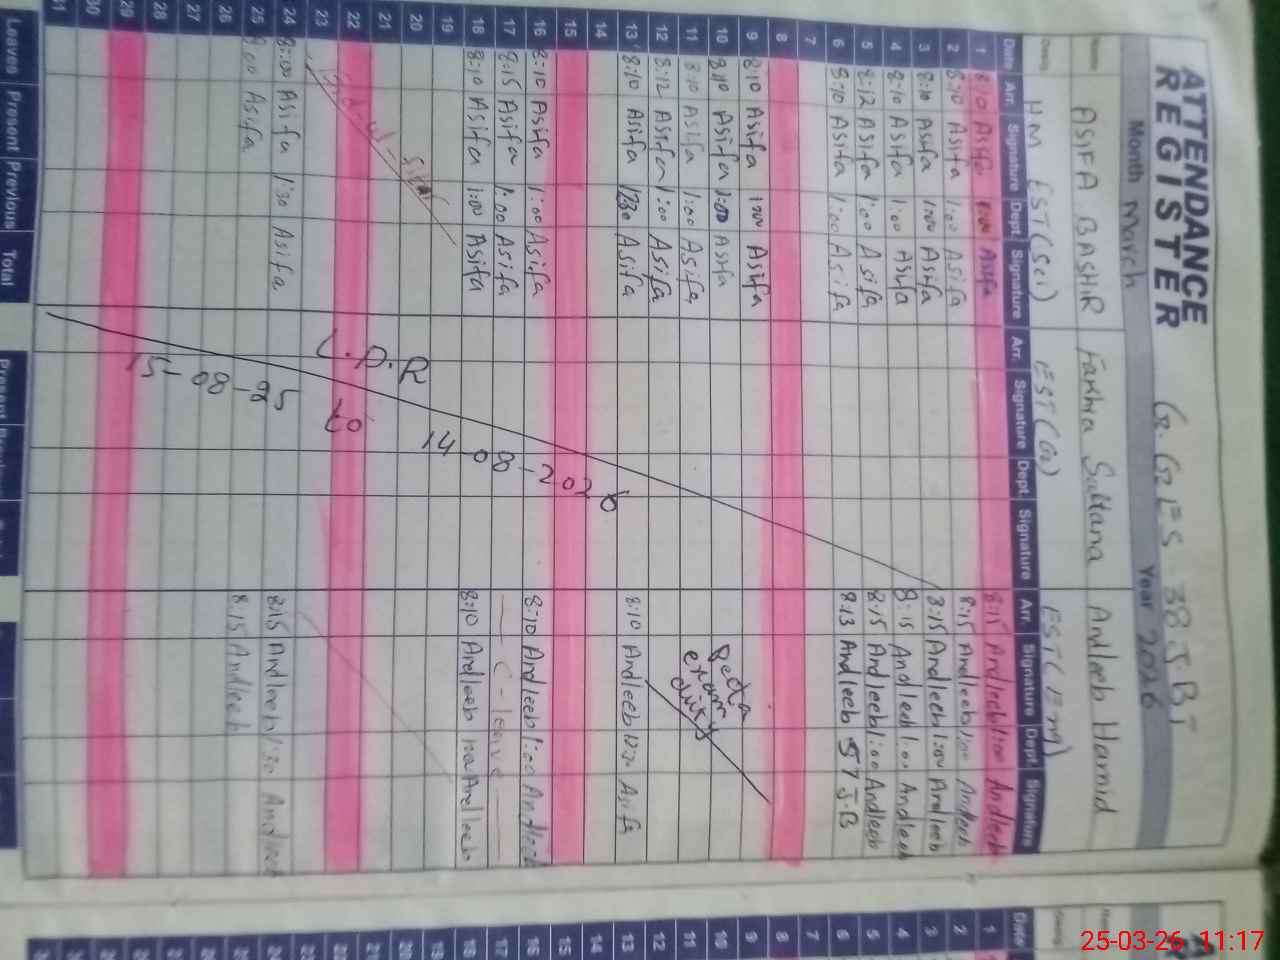 ATTENDANCE
REGISTER
G.G.E.S 38 J.BT
Month March Year 2026
ASIFA BASHIR Fakhra Sultana Andleeb Hamid
HM EST(Sci) EST(G) EST(Eng)
Date Arr. Signature Dept. Signature Arr. Signature Dept. Signature Arr. Signature Dept. Signature
1 8:10 Asifa 1:00 Asifa 8:15 Andleeb 1:00 Andleeb
2 8:10 Asifa 1:00 Asifa 8:15 Andleeb 1:00 Andleeb
3 8:10 Asifa 1:00 Asifa 8:15 Andleeb 1:00 Andleeb
4 8:10 Asifa 1:00 Asifa 8:15 Andleeb 1:00 Andleeb
5 8:12 Asifa 1:00 Asifa 8:15 Andleeb 1:00 Andleeb
6 8:10 Asifa 1:00 Asifa 8:13 Andleeb 57 J.B
7
8
9 8:10 Asifa 1:00 Asifa
10 8:10 Asifa 1:00 Asifa
11 8:10 Asifa 1:00 Asifa
12 8:12 Asifa 1:00 Asifa
Peeta exam duty
13 8:10 Asifa 1230 Asifa 8:10 Andleeb 1230 Asifa
14
15
16 8:10 Asifa 1:00 Asifa 8:10 Andleeb 1:00 Andleeb
17 8:15 Asifa 1:00 Asifa C-leave
18 8:10 Asifa 1:00 Asifa 8:10 Andleeb 1:00 Andleeb
19
20
21
22
23
L.P.R
15-08-25
To
14-08-2026
24 8:00 Asifa 1:30 Asifa 8:15 Andleeb 1:30 Andleeb
25 9:00 Asifa 8:15 Andleeb
26
27
28
29
30
31
Leaves Present Previous Total Present
Date
1 2 3 4 5 6 7 8 9 10 11 12 13 14 15 16 17 18 19 20 21
25-03-26 11:17